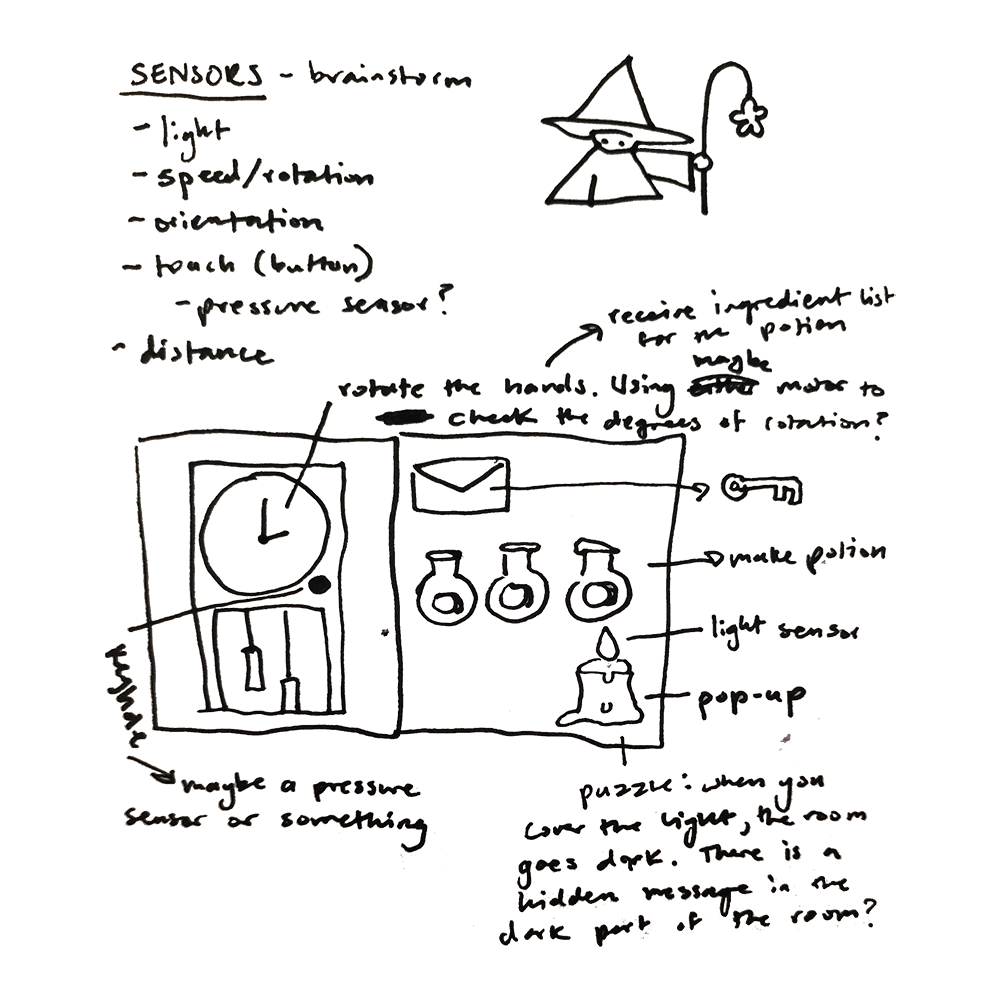 SENSORS - brainstorm
- light
- speed/rotation
- orientation
- touch (button)
- pressure sensor?
- distance
receive ingredient list
for the potion
maybe
rotate the hands. Using motor to
check the degrees of rotation?
make potion
light sensor
pop-up
keyhole
maybe a pressure
sensor or something
puzzle: when you
cover the light, the room
goes dark. There is a
hidden message in the
dark part of the room?